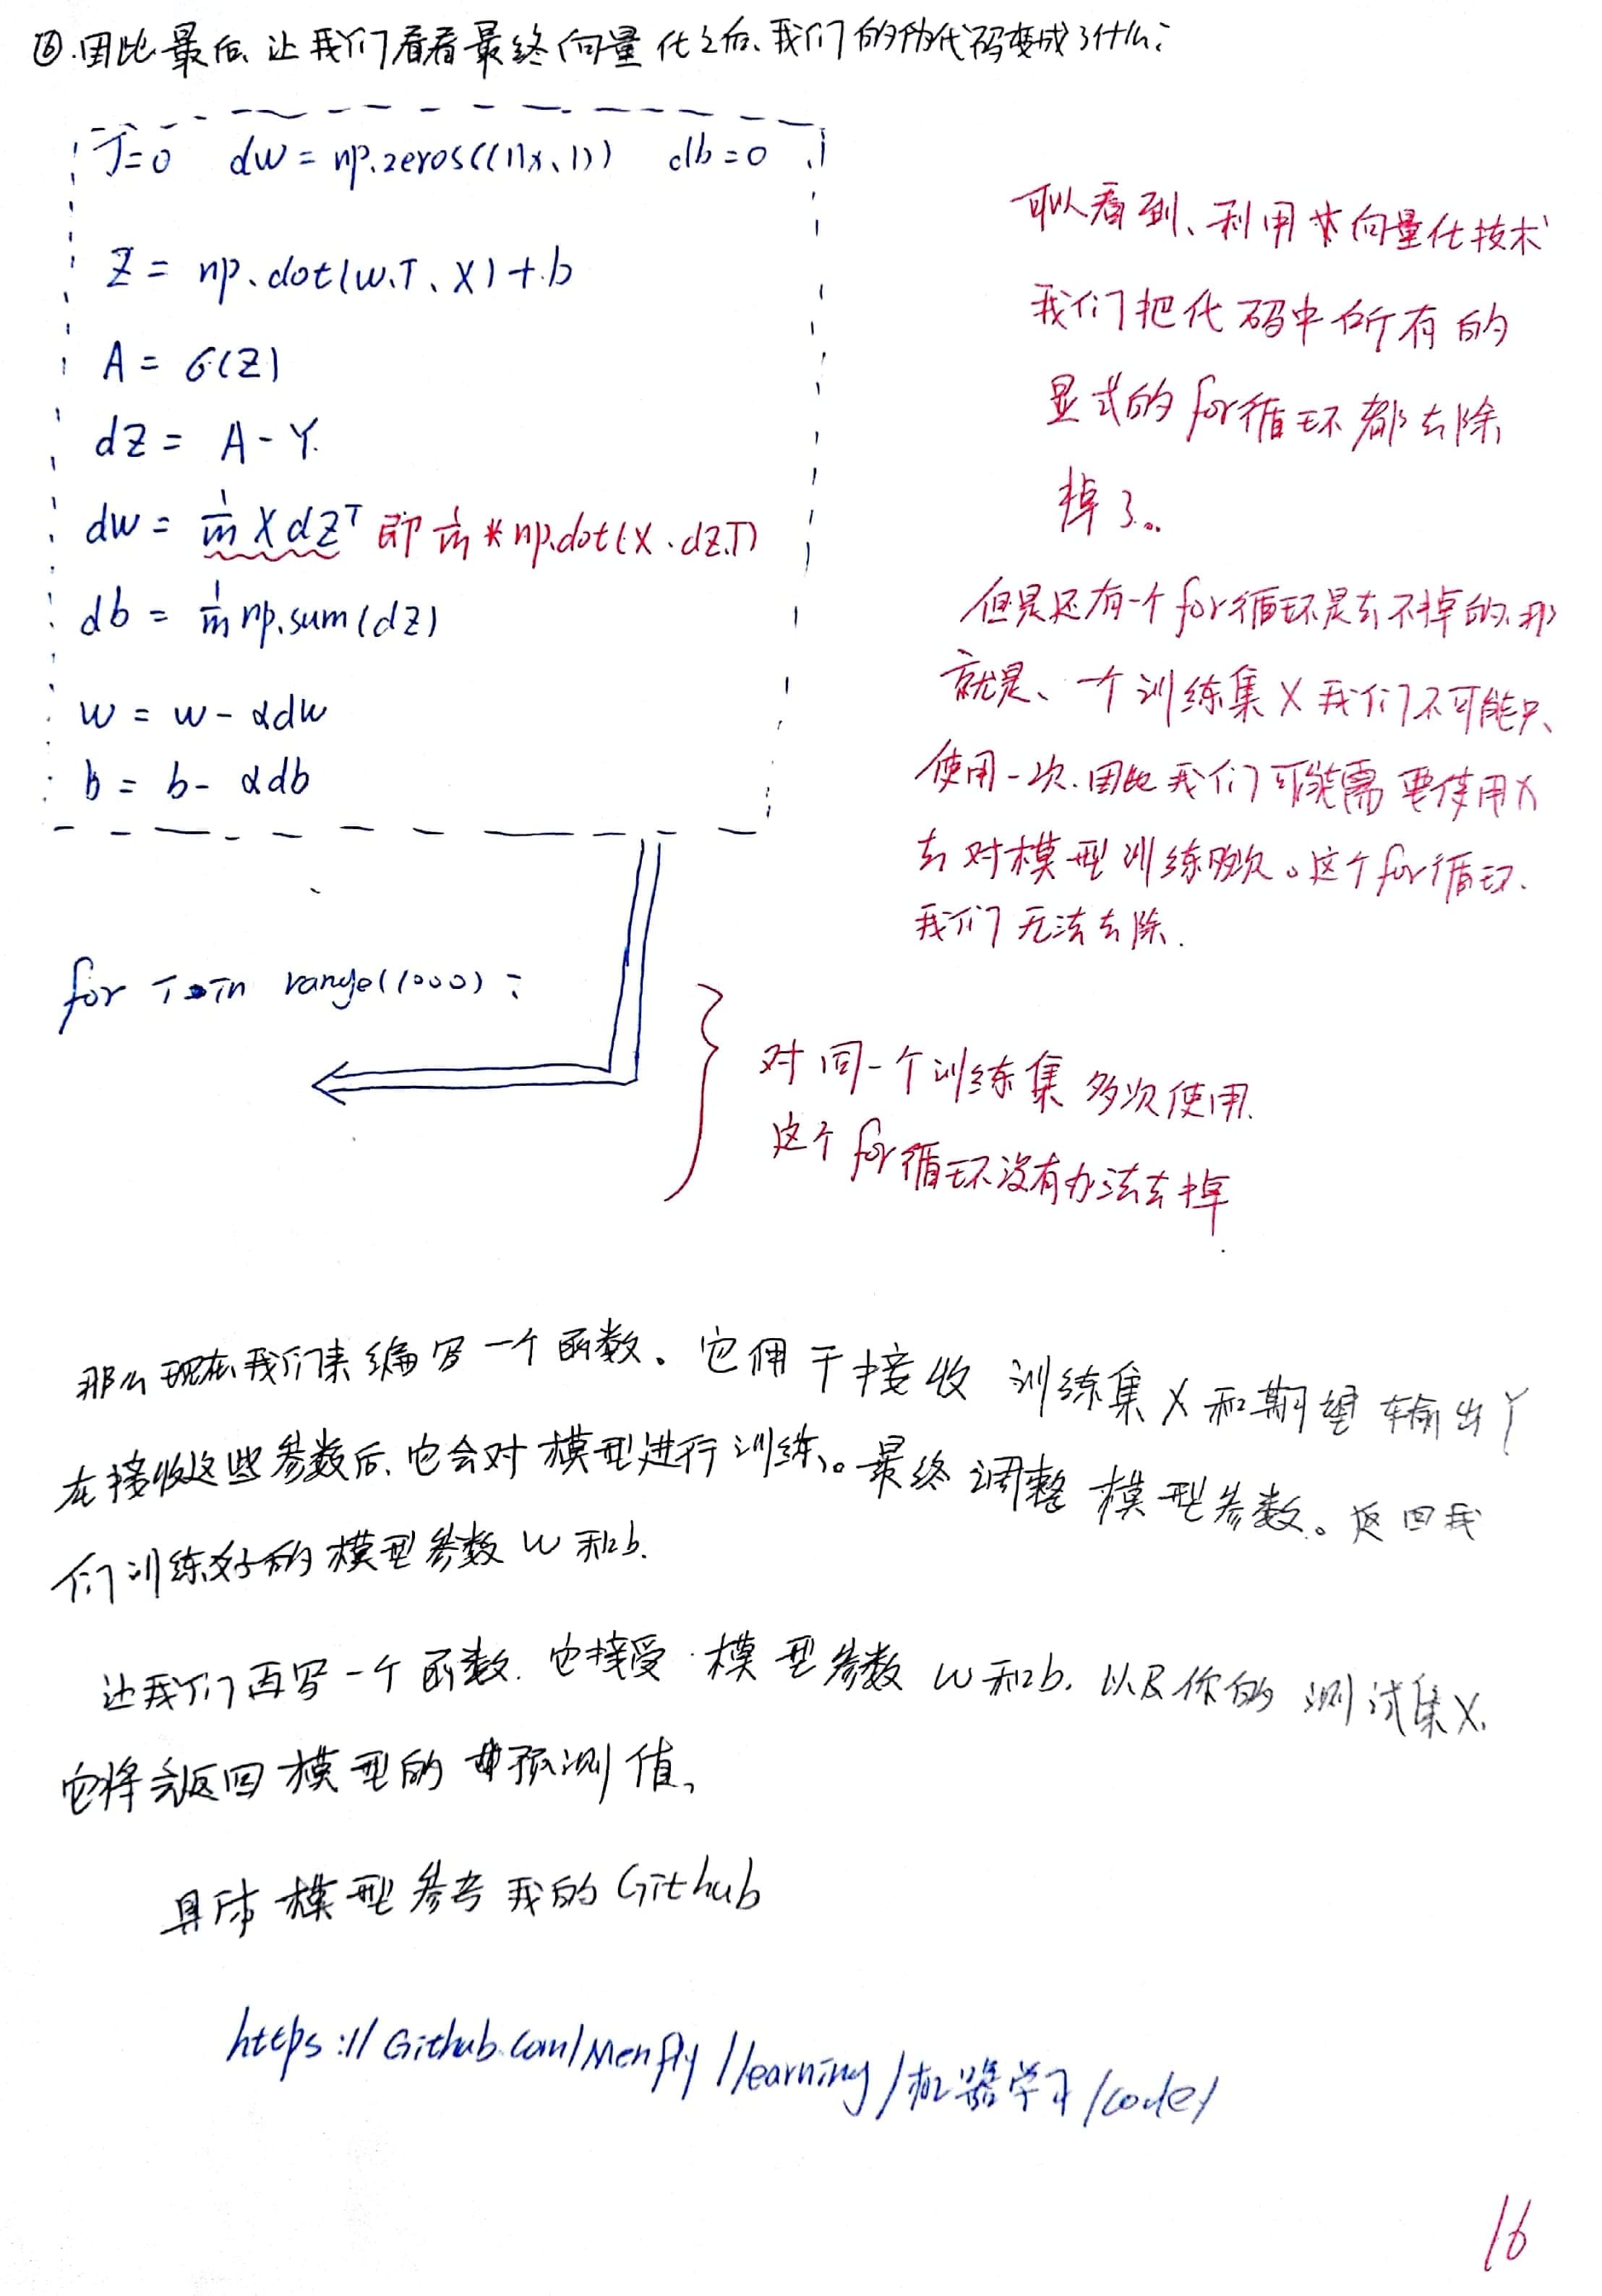 ⑥.因此最后、让我们看看最终向量化之后、我们的伪代码变成了什么:
J=0 dw = np.zeros((nx、1)) db=0
Z = np.dot(w.T、X)+b
A = σ(Z)
dZ = A-Y.
dw = 1/m X dZᵀ 即 1/m * np.dot(X.dZ.T)
db = 1/m np.sum(dZ)
w = w-αdw
b = b-αdb
可以看到、利用向量化技术
我们把代码中所有的
显式的for循环都去除
掉了。
但是还有一个for循环是去不掉的、那
就是、一个训练集X我们不可能只
使用一次.因此我们可能需要使用X
去对模型训练多次。这个for循环.
我们无法去除.
for i in range(1000):
对同一个训练集多次使用.
这个for循环没有办法去掉
那么现在我们来编写一个函数。它用于接收训练集X和期望输出Y
在接收这些参数后、它会对模型进行训练。最终调整模型参数。返回我
们训练好的模型参数w和b.
让我们再写一个函数.它接受模型参数w和b.以及你的测试集X.
它将会返回模型的预测值、
具体模型参考我的Github
https://Github.com/Menfly/learning/机器学习/code/
16